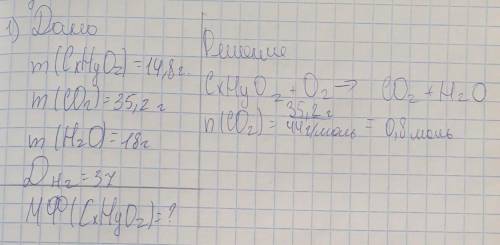 1) Дано
m(CxHyO₂)=14,8г.
m(CO₂)=35,2г
m(H₂O)=18г
D H₂=37
МФ(CxHyO₂)=?
Решение
CxHyO₂+O₂→ CO₂+H₂O
n(CO₂)= 35,2г / 44г/моль = 0,8моль